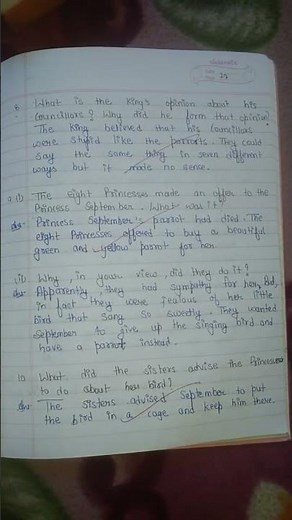 77
8. What is the King's opinion about his
Councillors? Why did he form that opinion?
The King believed that his Councillors
were stupid like the parrots. They could
say the same thing in seven different
ways but it made no sense.
9. (i) The eight Princesses made an offer to the
Princess September. What was it?
Ans- Princess September's parrot had died. The
eight Princesses offered to buy a beautiful
green and yellow parrot for her.
(ii) Why, in your view, did they do it?
Ans- Apparently they had sympathy for her, But,
in fact they were jealous of her little
bird that sang so sweetly. They wanted
September to give up the singing bird and
have a parrot instead.
10. What did the sisters advise the Princess
to do about her bird?
Ans- The sisters advised September to put
the bird in a cage and keep him there.